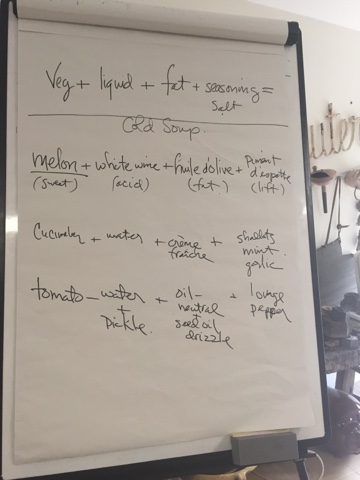 Veg + liquid + fat + seasoning =
salt
Cold Soup.
melon + white wine + huile d'olive + Piment d'espelette
(sweet) (acid) (fat) (lift)
Cucumber + water + crème fraîche + shallots mint garlic
tomato - water + pickle + oil - neutral + seed oil drizzle + pepper